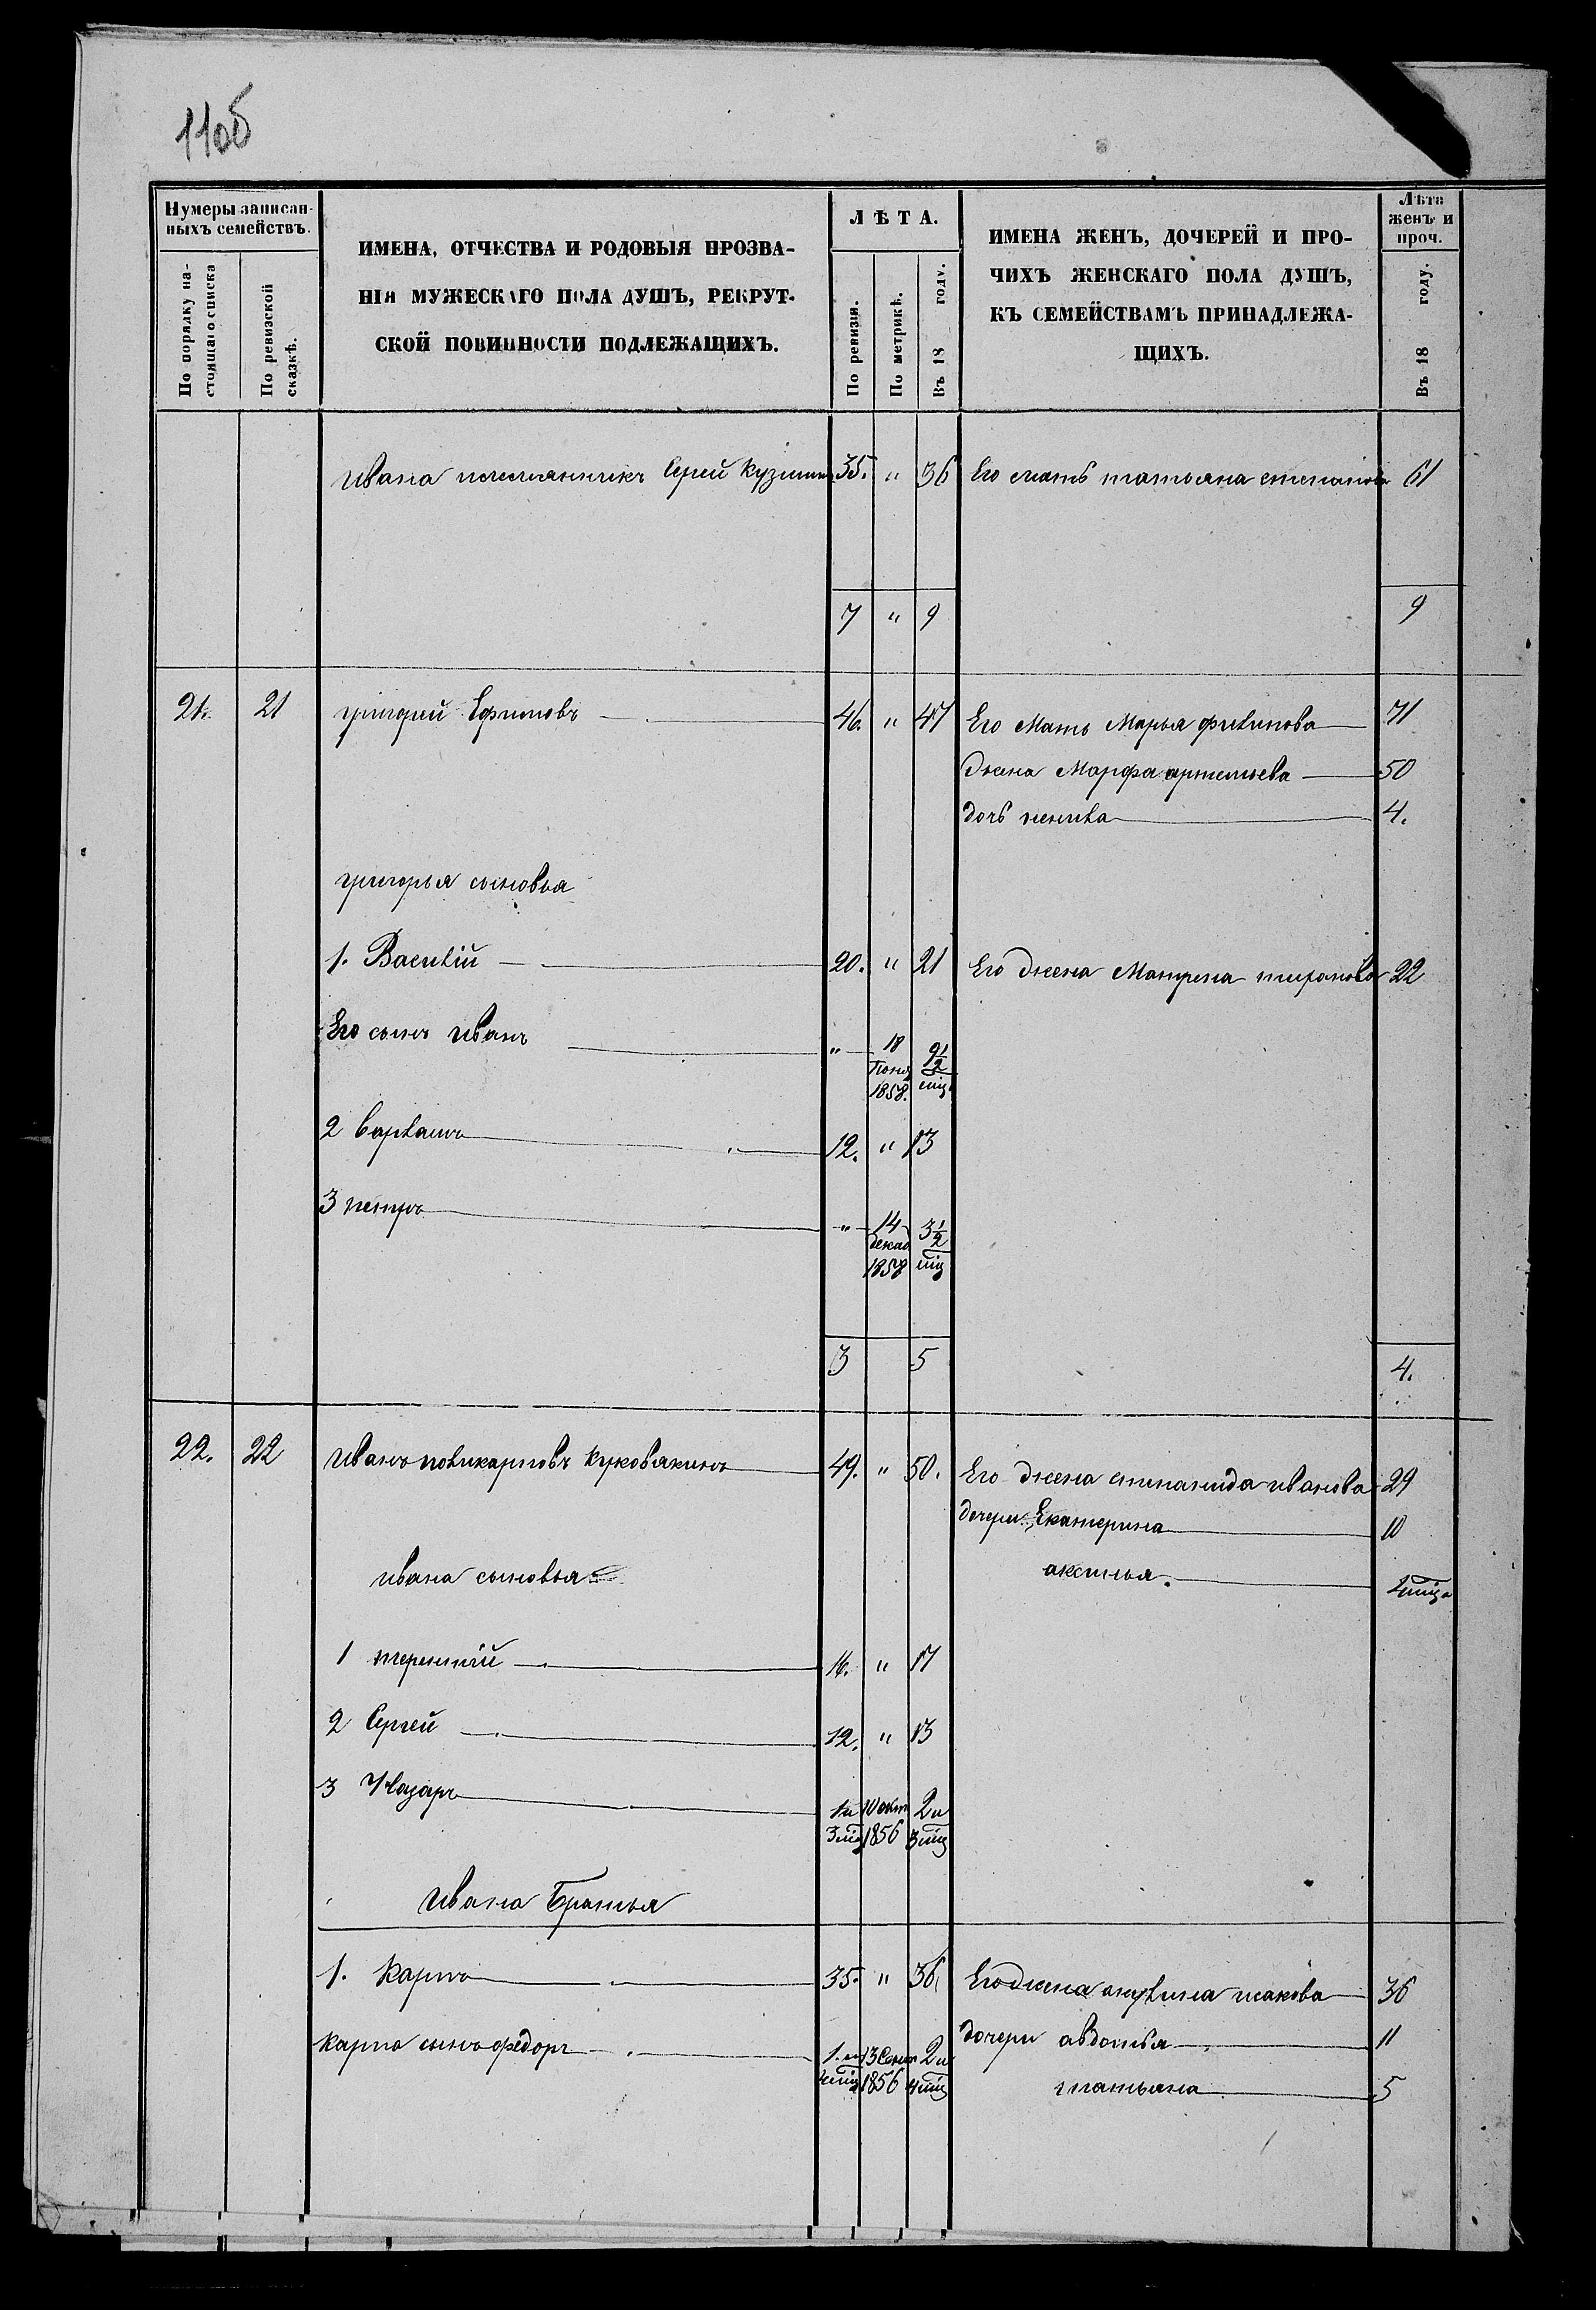 110б
Нумеры записан-
ныхъ семействъ.
По порядку на-
стоящаго списка
По ревизской
сказкѣ.
ИМЕНА, ОТЧЕСТВА И РОДОВЫЯ ПРОЗВА-
НІЯ МУЖЕСКАГО ПОЛА ДУШЪ, РЕКРУТ-
СКОЙ ПОВИННОСТИ ПОДЛЕЖАЩИХЪ.
ЛѢТА.
По ревизіи.
По метрикѣ.
Въ 18 году.
ИМЕНА ЖЕНЪ, ДОЧЕРЕЙ И ПРО-
ЧИХЪ ЖЕНСКАГО ПОЛА ДУШЪ,
КЪ СЕМЕЙСТВАМЪ ПРИНАДЛЕЖА-
ЩИХЪ.
Лѣта
женъ и
проч.
Въ 18 году.
Ивана племянникъ Сергей Кузминъ 35. " 36 Его мать татьяна степанова 61
7 " 9 9
21. 21 григорий Ефимовъ 46. " 47 Его Мать Марья филипова 71
жена Марфа артемьева 50
дочь 4.
григорья сыновья
1. Василій 20. " 21 Его жена Матрена 22
Его сынъ Иванъ " 18 9½
1858. мѣц
2 варламъ 12. " 13
3 петръ " 14 3½
декаб мѣц
1858
3 5 4.
22. 22 Иванъ поликарповъ Куковякинъ 49. " 50. Его жена степанида иванова 29
дочери: Екатерина 10
ивана сыновья аксинья.
1 терентій 16. " 17
2 Сергей 12. " 13
3 Назаръ 1 и 10 окт 2 и
3 мѣц 1856 3 мѣц
Ивана Братья
1. Карпъ 35. " 36. Его жена акулина исакова 36
карпа сынъ федоръ 1. и 13 Сент 2 и дочери авдотья 11
4 мѣц 1856 4 мѣц татьяна 5